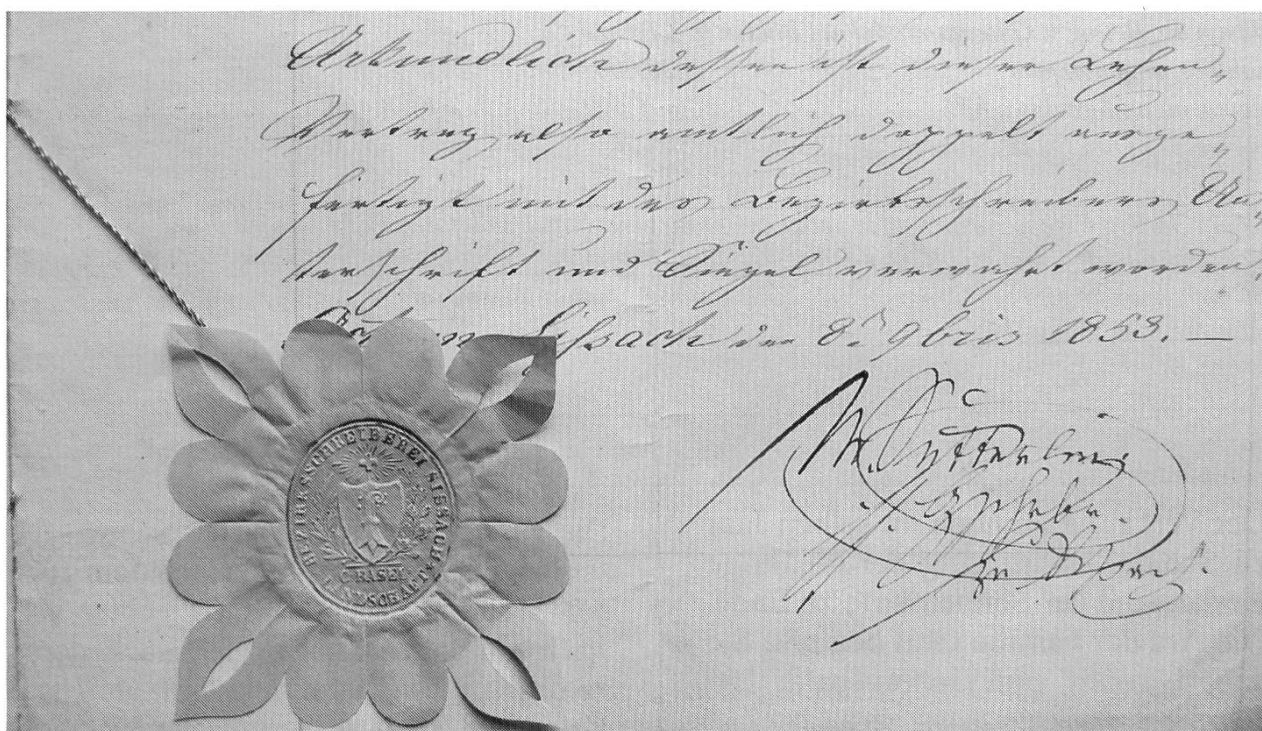 Urkundlich dessen ist dieser Lehen„
Vertrag also amtlich doppelt ausge„
fertigt mit des Bezirksschreibers Un„
terschrift und Siegel verwahrt worden.
Sißach den 8n 9bris 1853. —
BEZIRKSSCHREIBEREI SISSACH
LANDSCHAFT
C. BASEL